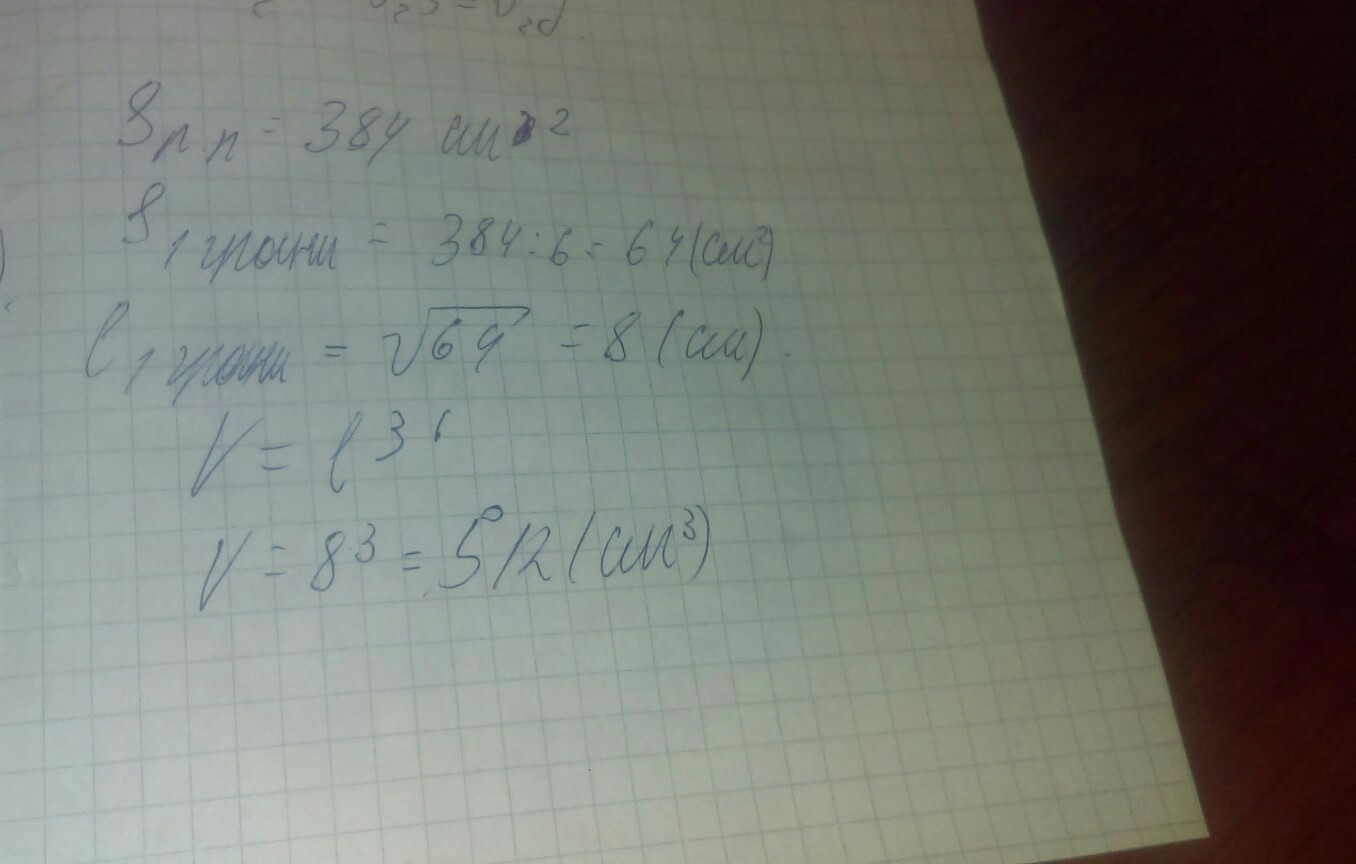 Sп.п = 384 см²
S1 грани = 384 : 6 = 64 (см²)
l1 грани = √64 = 8 (см).
V = l³
V = 8³ = 512 (см³)